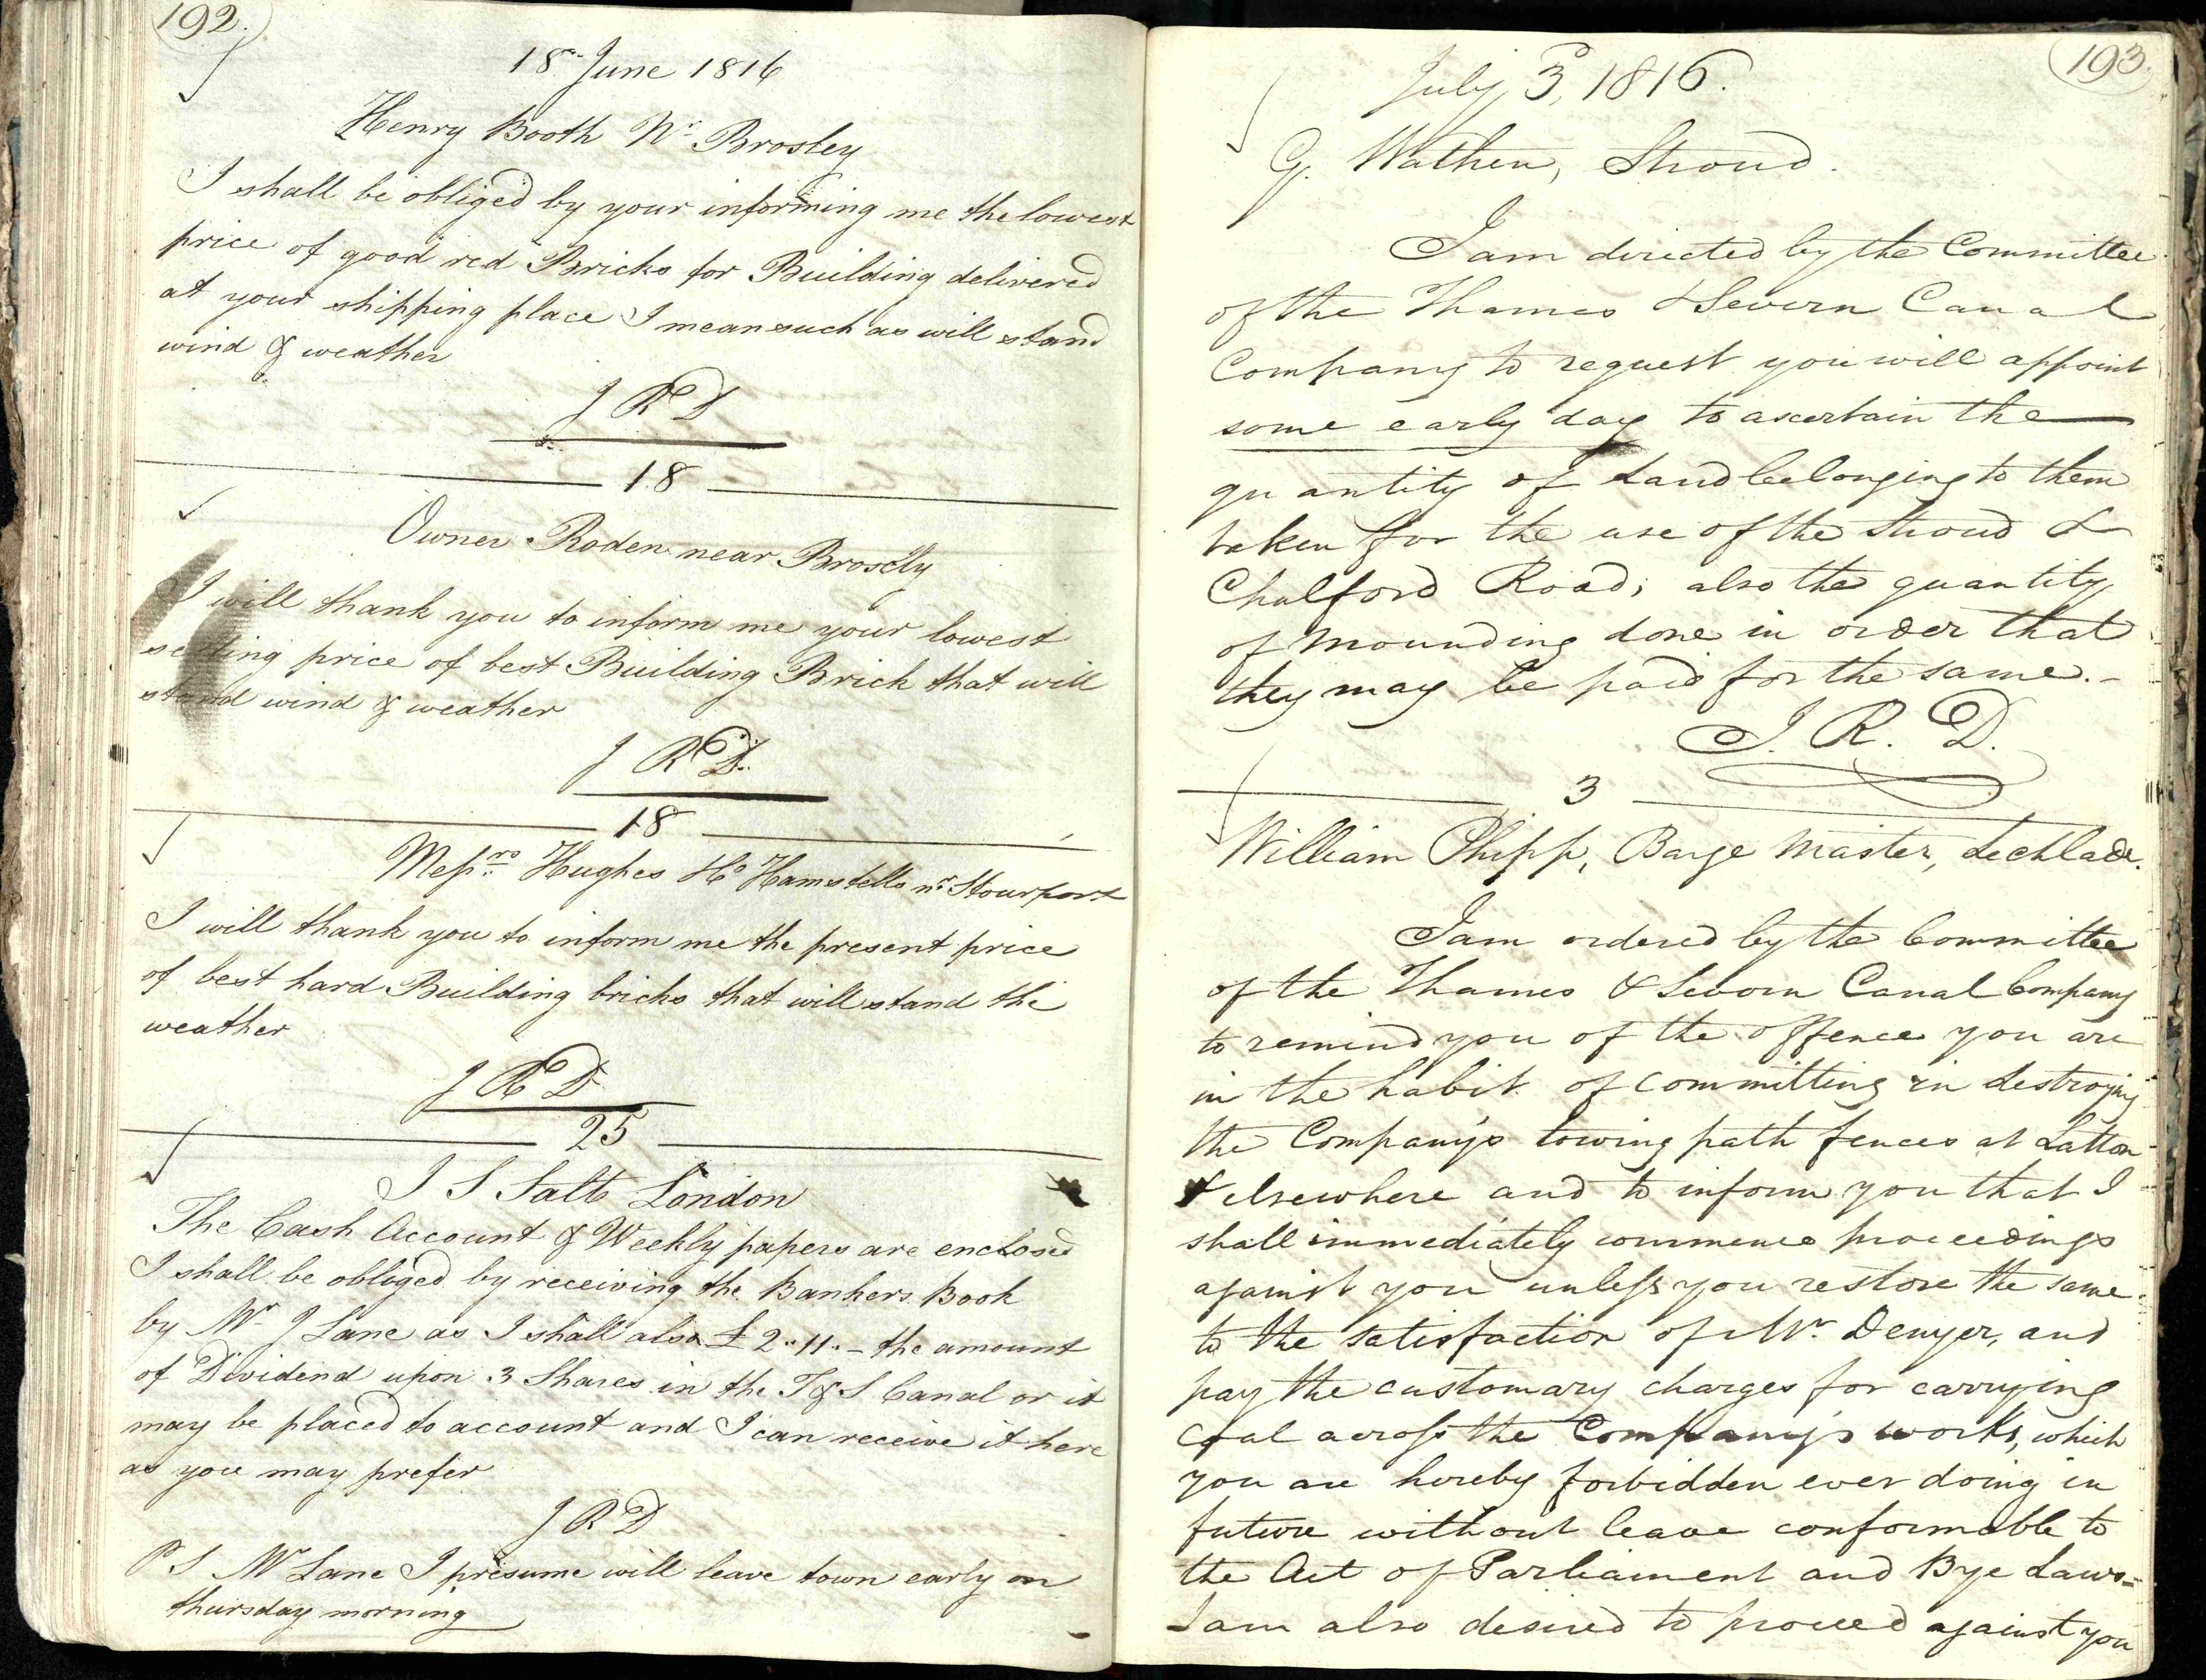 192.
18 June 1816
Henry Booth Nr Brosley
I shall be obliged by your informing me the lowest
price of good red Bricks for Building delivered
at your shipping place I mean such as will stand
wind & weather
J R D
18
Owner Roden near Brosely
I will thank you to inform me your lowest
selling price of best Building Brick that will
stand wind & weather
J R D.
18
Messrs Hughes Ho Hamstells nr Stourport
I will thank you to inform me the present price
of best hard Building bricks that will stand the
weather
J R D
25
J S Salt London
The Cash Account & Weekly papers are enclosed
I shall be obloged by receiving the Bankers Book
by Mr J Lane as I shall also £2..11..- the amount
of Dividend upon 3 Shares in the T & S Canal or it
may be placed to account and I can receive it here
as you may prefer
J R D
P S Mr Lane I presume will leave town early on
thursday morning
193.
July 3, 1816.
G. Wathen, Stroud.
I am directed by the Committee
of the Thames & Severn Canal
Company to request you will appoint
some early day to ascertain the
quantity of Land belonging to them
taken for the use of the Stroud &
Chalford Road; also the quantity
of Mounding done in order that
they may be paid for the same.-
J. R. D.
3
William Phipp, Barge Master, Lechlade.
I am ordered by the Committee
of the Thames & Severn Canal Company
to remind you of the offence you are
in the habit of committing in destroying
the Company's towing path fences at Latton
& elsewhere and to inform you that I
shall immediately commence proceedings
against you unless you restore the same
to the satisfaction of Mr. Denyer, and
pay the customary charges for carrying
Coal across the Company's works, which
you are hereby forbidden ever doing in
future without leave conformable to
the Act of Parliament and Bye Laws=
I am also desired to proceed against you